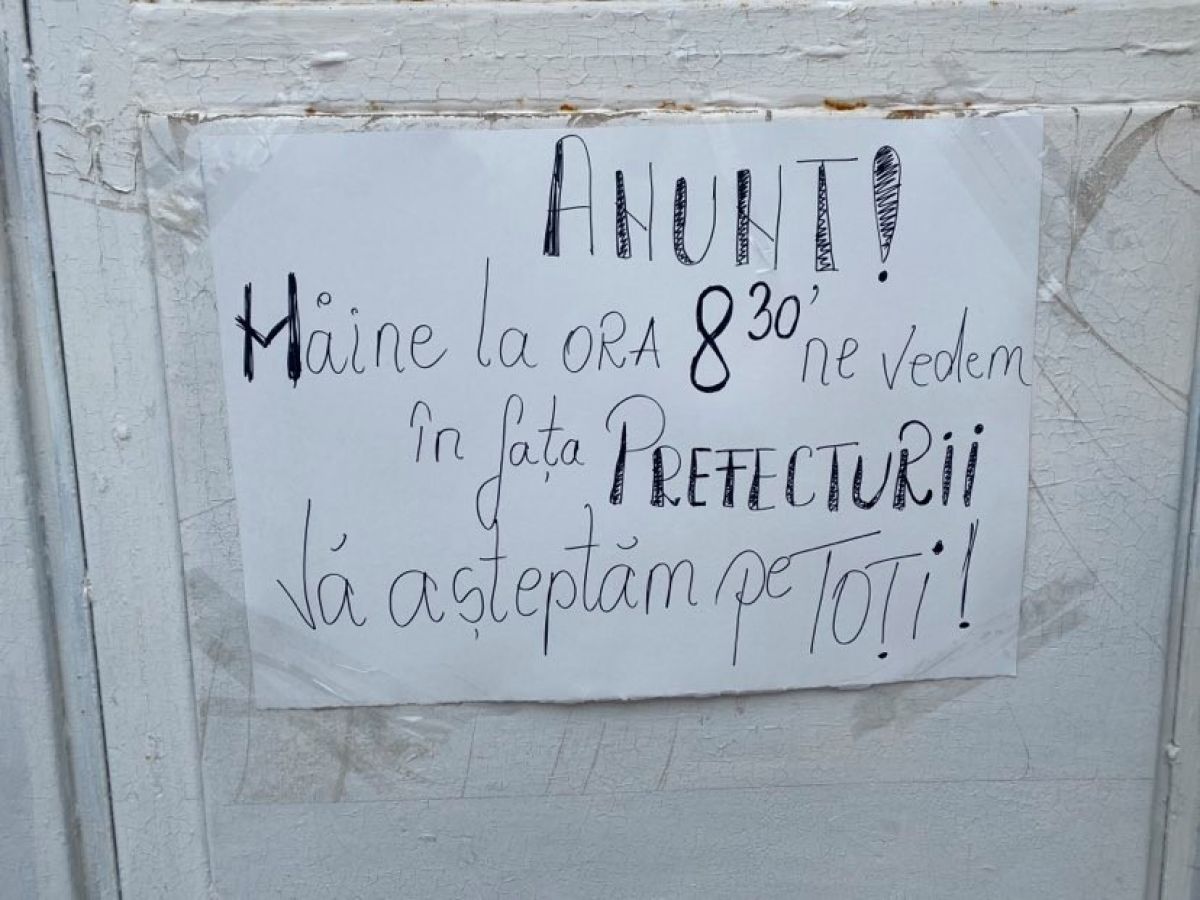 ANUNT!
Mâine la ORA 8 30' ne vedem
în fața PREFECTURII
Vă așteptăm pe TOȚI!